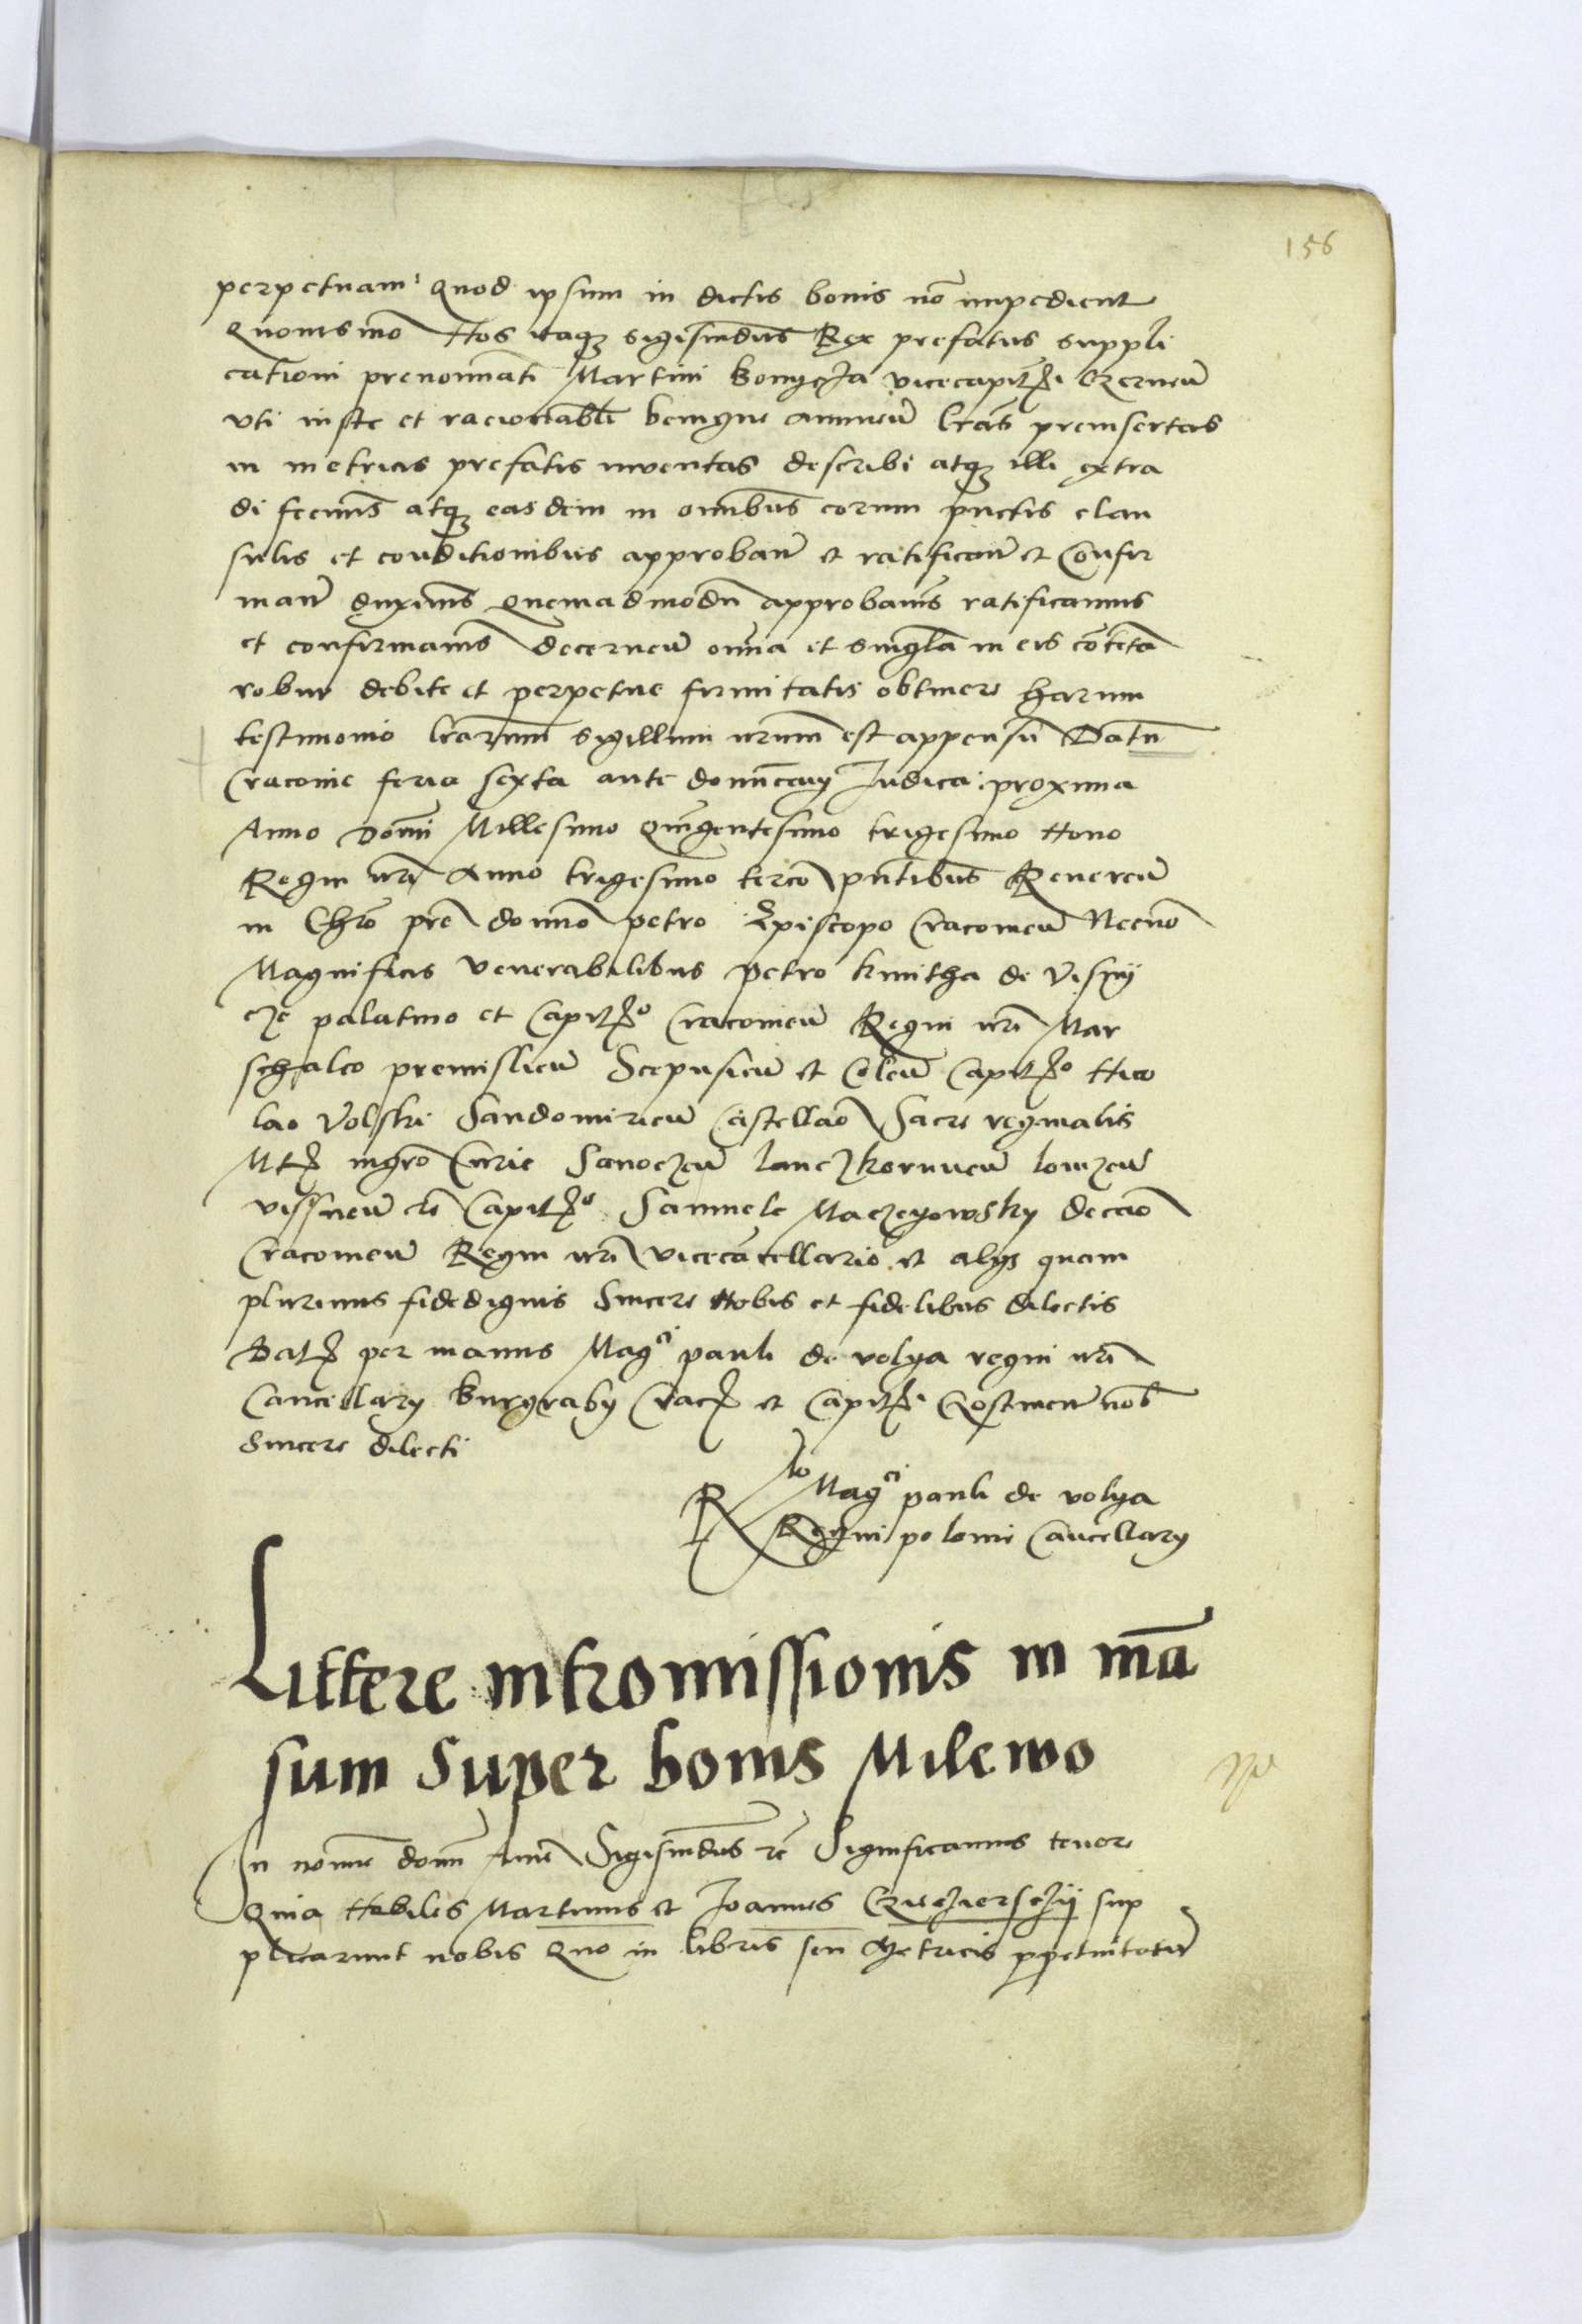 156
perpetuam quod ipsum in dictis bonis nō impedient
quovismō Nos itaqȝ Sigismūdus Rex prefatus suppli
cationi prenominati Martini Konyeza vicecapitei Czerneñ
vti iuste et racionabli benigne annueñ lr̄as preinsertas
in metricis prefatis inventas describi atqȝ illi extra
di fecim9 atqȝ easdem in omnibus eorum punctis clau
sulis et conditionibus approbañ et ratificañ et Confir
mañ duxim9 quemadmodū approbam9 ratificamus
et confirmam9 decerneñ omnia et singula in eis cōtēta
robur debite et perpetue firmitatis obtinere harum
testimonio lr̄arum sigillum nr̄um est appensū Datū
Cracovie feria sexta ante dominicam Iudica proxima
Anno Domi Millesimo quīgentesimo trigesimo Nono
Regni nr̄i Anno trigesimo tercō pñtibus Revereñ
in Chrō pr̄e domino petro Episcopo Cracovieñ Necnō
Magnificis venerabilibus petro kmitha de Visnij
cze palatino et Capitō Cracovieñ Regni nr̄i Mar
schalco premislieñ Scepusieñ et Coleñ Capitō Nico
lao Volski Sandomirieñ Castellaō Sacre reginalis
Mtis mgrō Curie Sanoczeñ lanczkoruneñ lomzeñ
vissneñ etc Capitō Samuele Maczeyowsky decaō
Cracovieñ Regni nr̄i vicecācellario et alys quam
plurimis fidedignis Sincere Nobis et fidelibus dilectis
Dat per manus Magci pauli de volya regni nr̄i
Cancellary Burgraby Crac et Capitei Gostineñ nob
Sincere dilecti
Rlo Magci pauli de volya
Regni polonie Cancellary
Littere intromissionis in mā
sum Super bonis Milewo
In nomine domī Amē Sigismūdus etc Significamus tenore
Quia Nobiles Martinus et Joannes sup
plicarunt nobis Quo in libris seu Metricis ppetuitatū